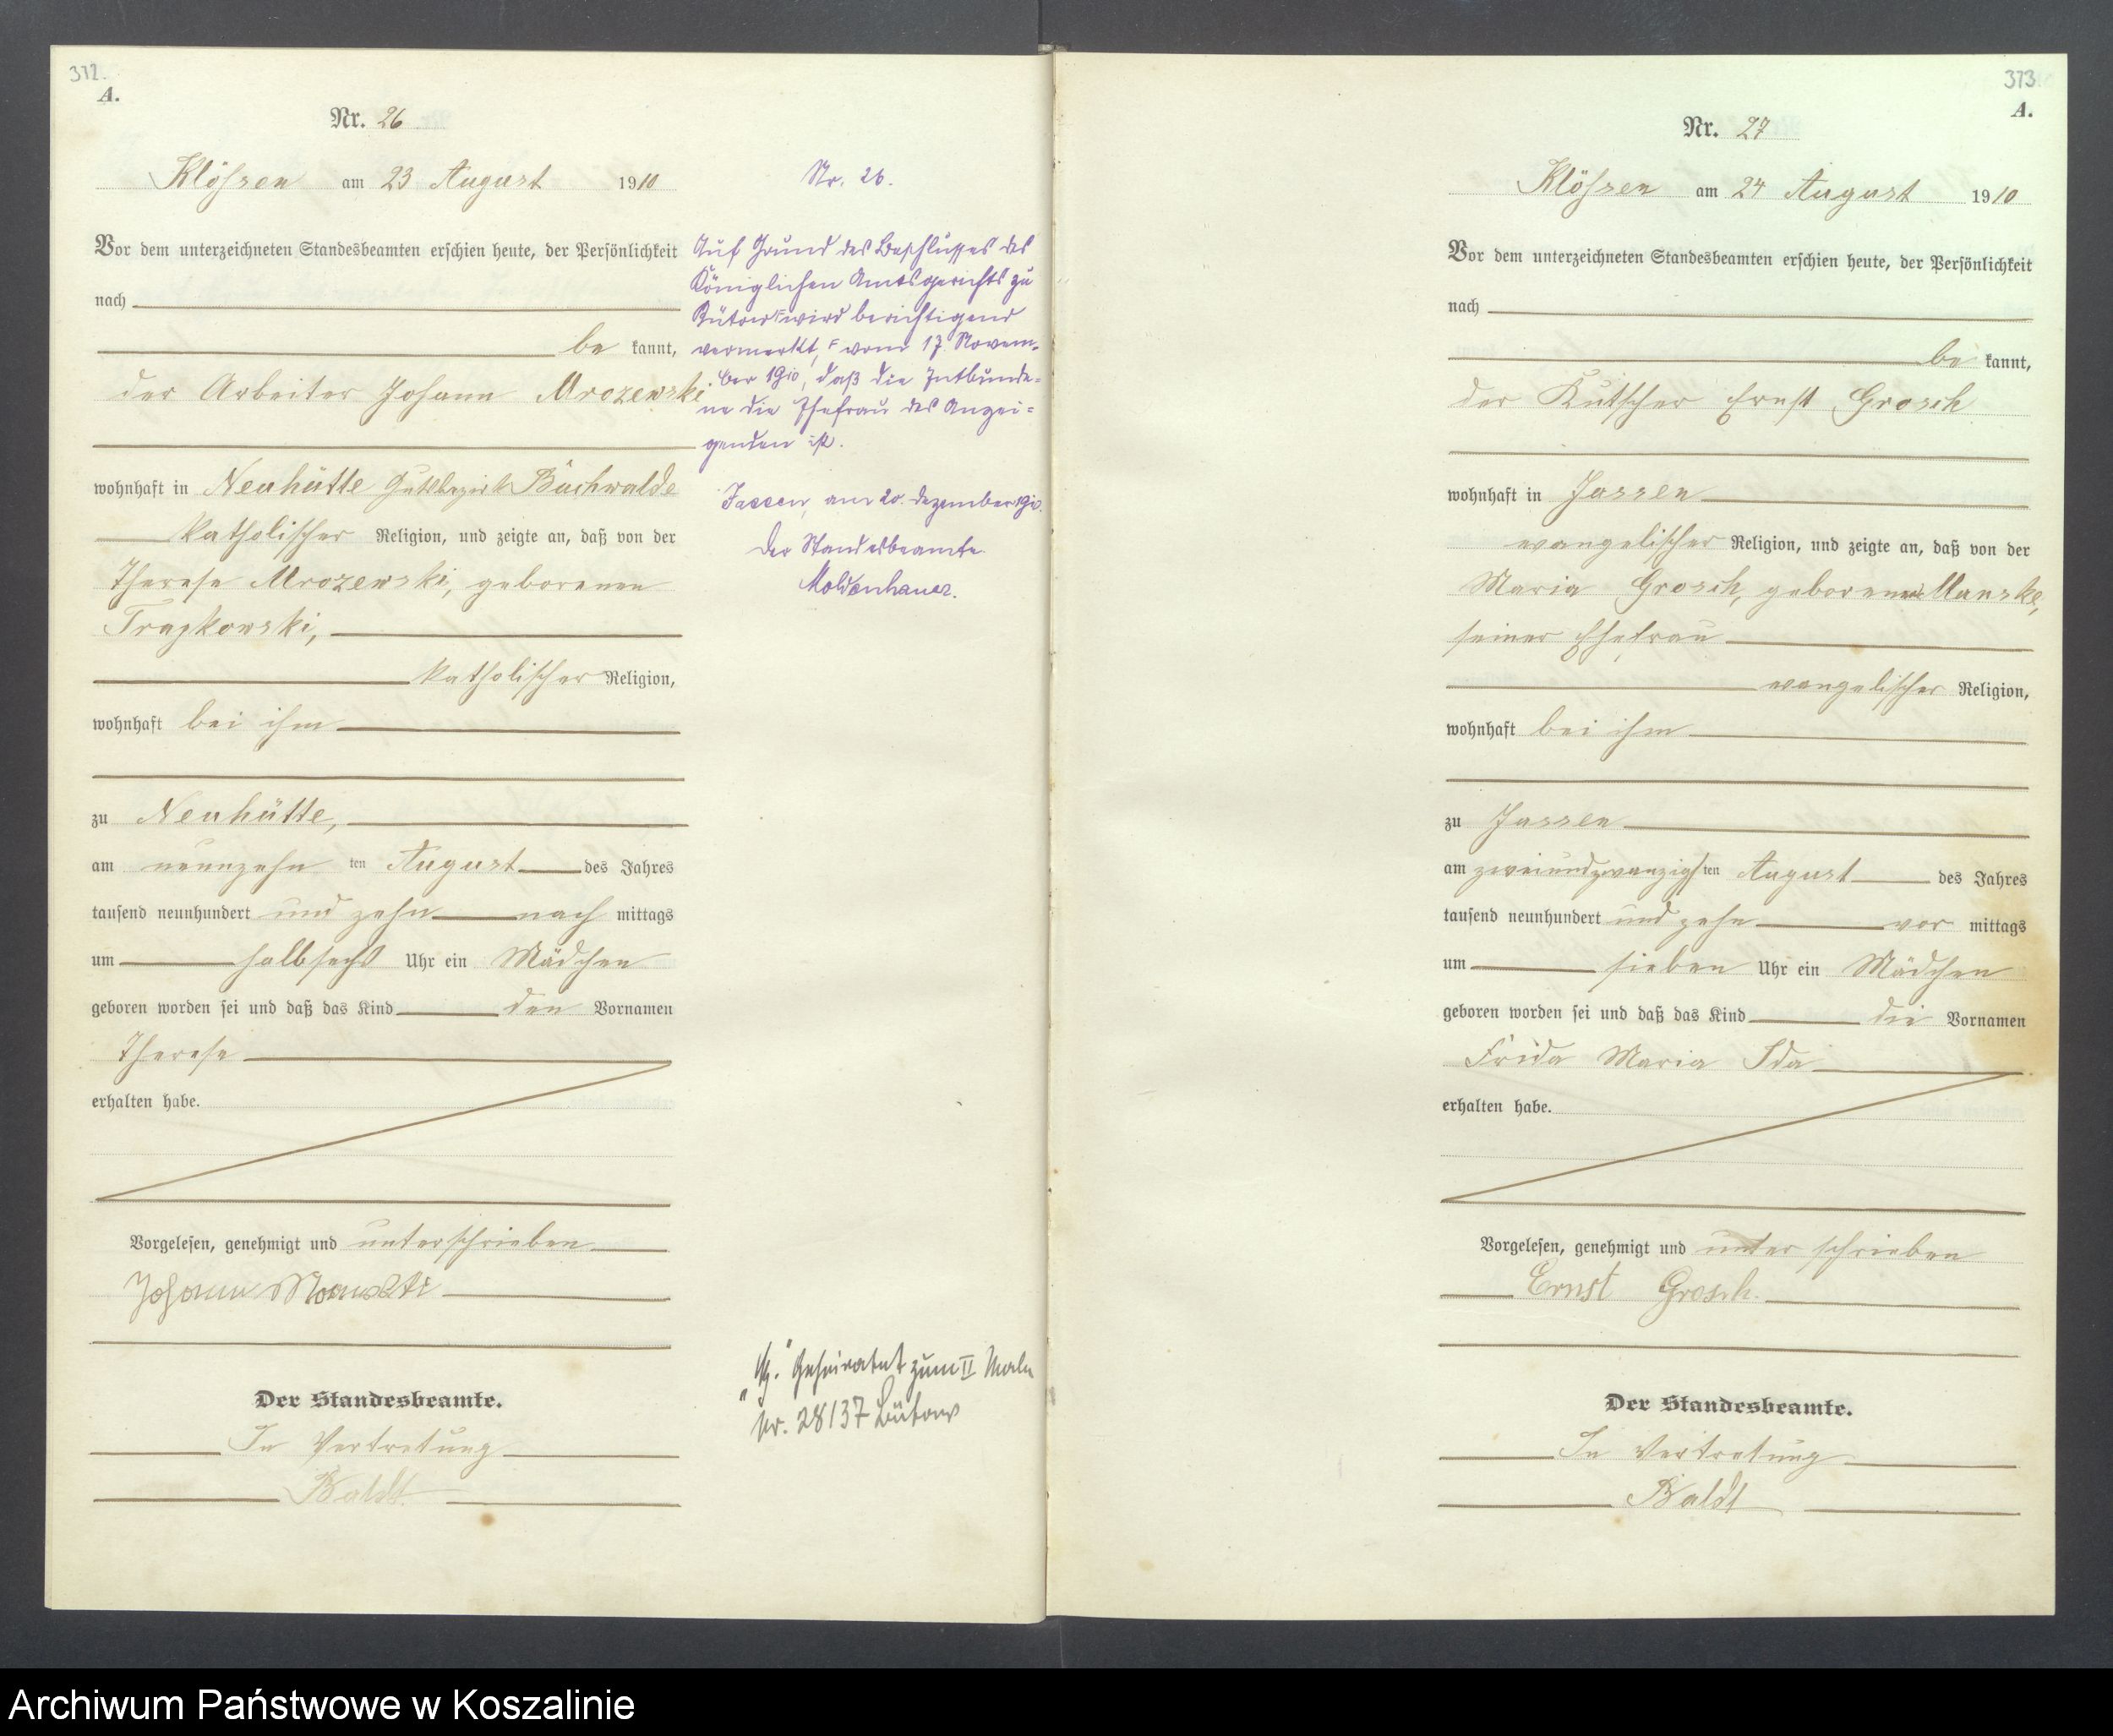 372.
A.
Nr. 26
Klössen am 23 August 1910
Vor dem unterzeichneten Standesbeamten erschien heute, der Persönlichkeit
nach
be kannt,
der Arbeiter Johann Mrozewski
wohnhaft in Neuhütte Gutsbezirk Buchwalde
katholischer Religion, und zeigte an, daß von der
Therese Mrozewski, geborenen
Trajkowski,
katholischer Religion,
wohnhaft bei ihm
zu Neuhütte,
am neunzehn ten August des Jahres
tausend neunhundert und zehn nach mittags
um halb sechs Uhr ein Mädchen
geboren worden sei und daß das Kind den Vornamen
Therese
erhalten habe.
Vorgelesen, genehmigt und unterschrieben
Johann
Der Standesbeamte.
In Vertretung
Baldt
Nr. 26.
Auf Grund des Beschlusses des
Königlichen Amtsgerichts zu
Bütow ⌜ wird berichtigend
vermerkt, ⌜ vom 17. Novem-
ber 1910, daß die Entbunde-
ne die Ehefrau des Anzei-
genden ist.
Jassen, am 20. Dezember 1910.
Der Standesbeamte
Moldenhauer.
Geheiratet zum II Male
Nr. 28/37 Bütow
373.
A.
Nr. 27
Klössen am 24 August 1910
Vor dem unterzeichneten Standesbeamten erschien heute, der Persönlichkeit
nach
be kannt,
der Kutscher Ernst Grosch
wohnhaft in Jassen
evangelischer Religion, und zeigte an, daß von der
Maria Grosch, geborenen Manske,
seiner Ehefrau
evangelischer Religion,
wohnhaft bei ihm
zu Jassen
am zweiundzwanzigsten August des Jahres
tausend neunhundert und zehn vor mittags
um sieben Uhr ein Mädchen
geboren worden sei und daß das Kind die Vornamen
Frida Maria Ida
erhalten habe.
Vorgelesen, genehmigt und unterschrieben
Ernst Grosch.
Der Standesbeamte.
In Vertretung
Baldt
Archiwum Państwowe w Koszalinie